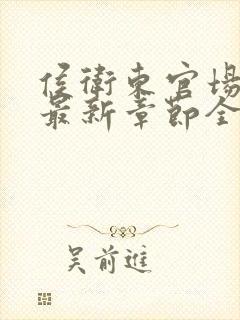 侯衛東官場
最新章節全
吳前進